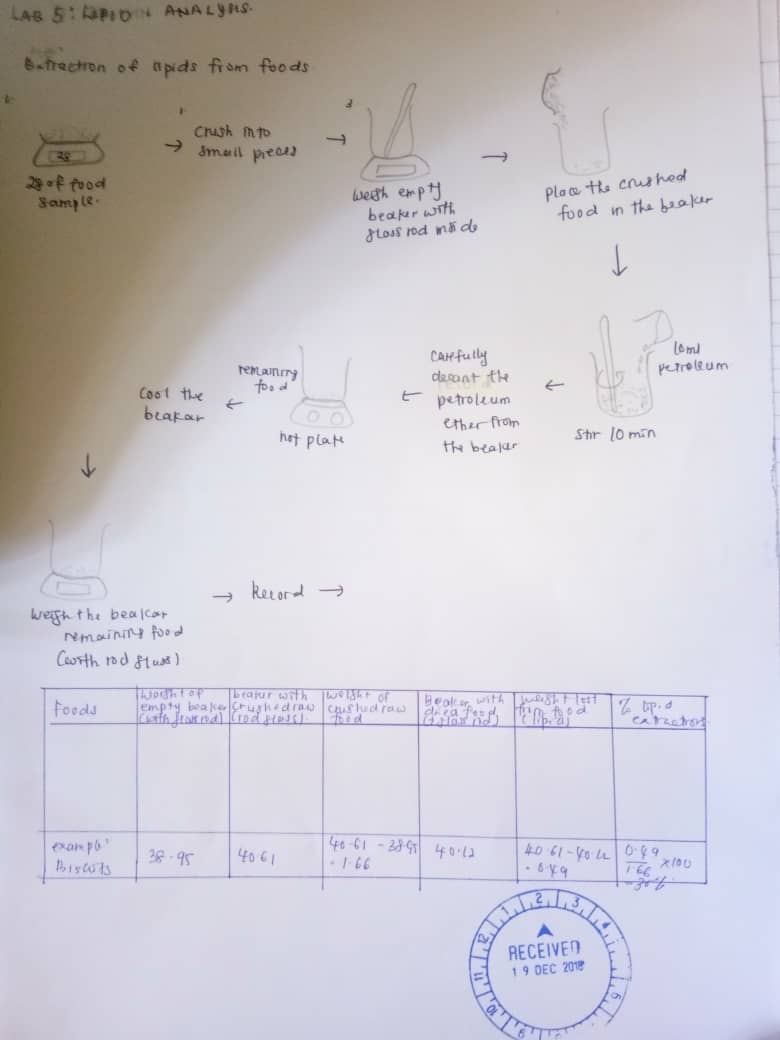 LAB 5: LIPID ANALYSIS.
Extraction of lipids from foods
2g
2g of food
sample.
→ crush into
small pieces
→
weigh empty
beaker with
glass rod inside
→
place the crushed
food in the beaker
↓
10ml
petroleum
stir 10 min
←
carefully
decant the
petroleum
ether from
the beaker
←
remaining
food
hot plate
←
cool the
beakar
↓
weigh the beakar
remaining food
(with rod glass)
→ Record →
Foods
weight of
empty beaker
(with glass rod)
beaker with
crushed raw
(rod glass).
weight of
crushed raw
food
Beaker with
dried food
(+ glass rod)
weight lost
from food
(lipid)
% lipid
extractions
example:
Biscuits
38.95
40.61
40.61 - 38.95
= 1.66
40.12
40.61 - 40.12
= 0.49
0.49
1.66
×100
= 30%
RECEIVED
19 DEC 2018
12
1
2
3
4